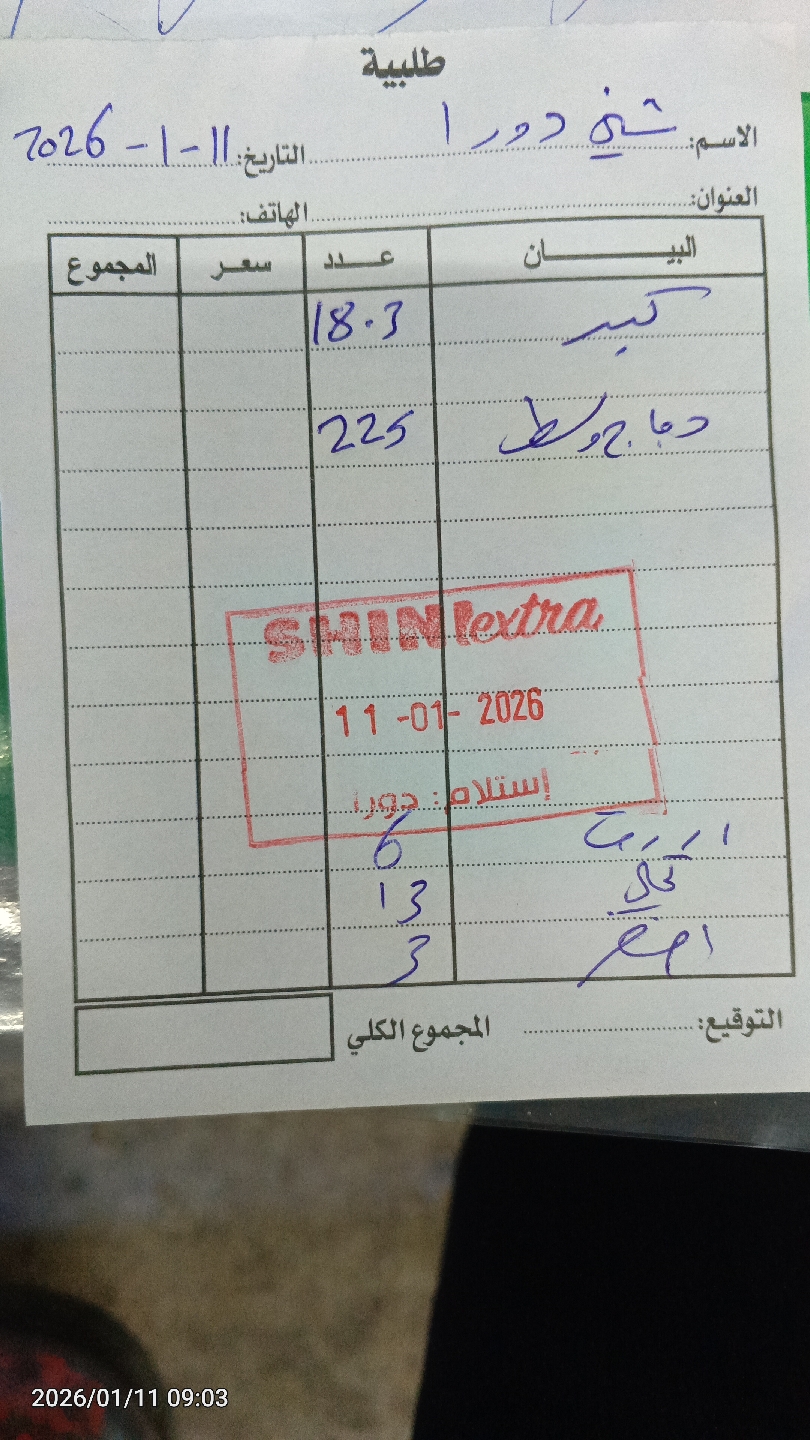 طلبية
الاسم: شيني دورا التاريخ: 11-1-2026
العنوان: الهاتف:
البيــان عــدد سعـر المجموع
كبير 18.3
دجاج وسط 225
SHINI extra
11-01-2026
إستلام: دورا
6
13
اخضر 3
التوقيع: المجموع الكلي
2026/01/11 09:03